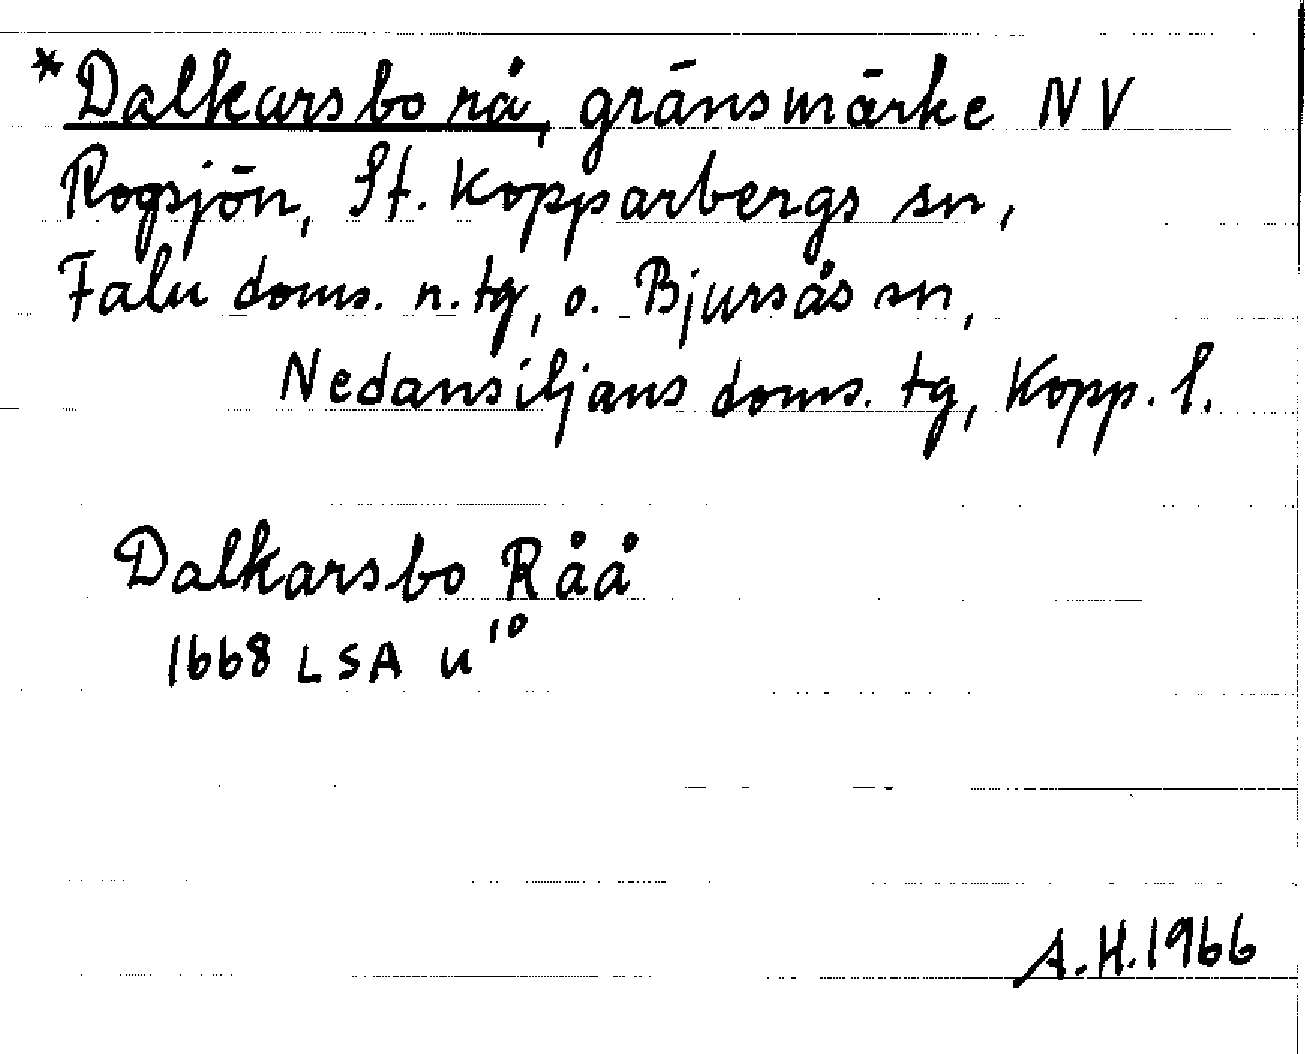 *Dalkarsbo rå, gränsmärke NV
Rogsjön, St. Kopparbergs sn,
Falu doms. n. tg, o. Bjursås sn,
Nedansiljans doms. tg, Kopp. l.
Dalkarsbo Råå
1668 LSA U¹⁰
A.H. 1966